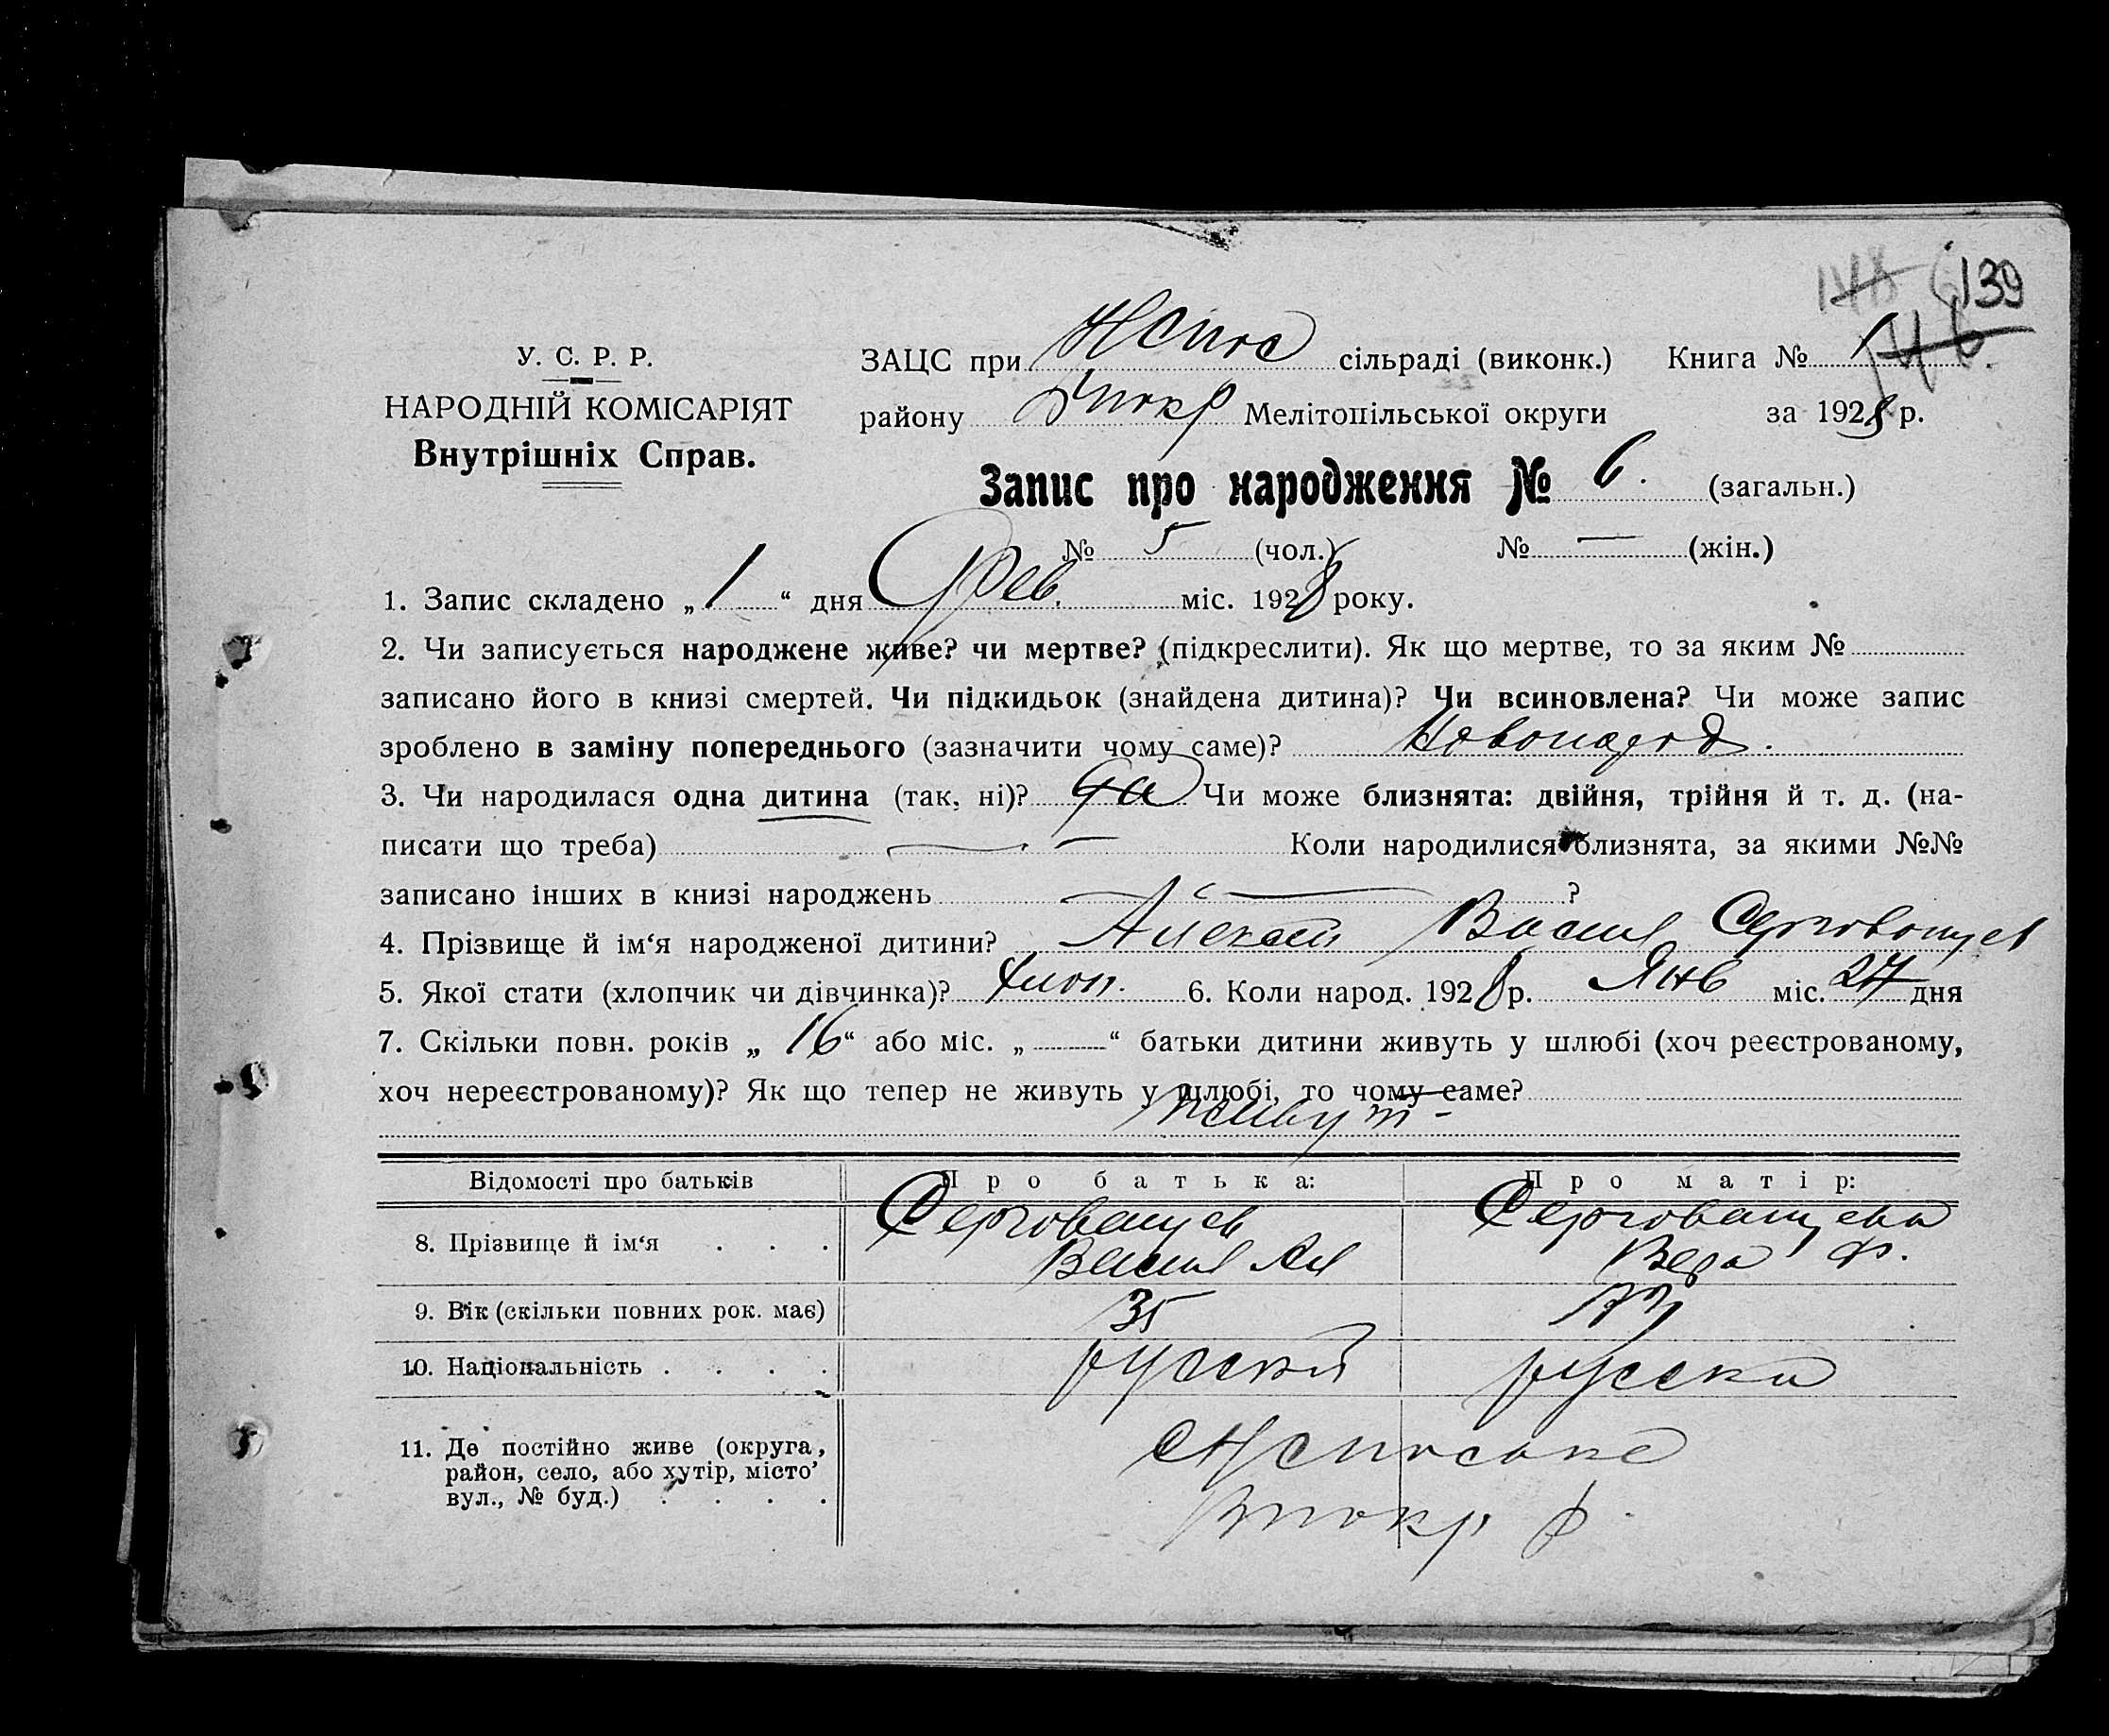 139
У. С. Р. Р.
НАРОДНІЙ КОМІСАРІЯТ
Внутрішніх Справ.
ЗАЦС при сільраді (виконк.) Книга № 1
району Мелітопільської округи за 1928 р.
Запис про народження № 6. (загальн.)
№ 5 (чол.) № — (жін.)
1. Запис складено „ 1 “ дня Фев. міс. 1928 року.
2. Чи записується народжене живе? чи мертве? (підкреслити). Як що мертве, то за яким №
записано його в книзі смертей. Чи підкидьок (знайдена дитина)? Чи всиновлена? Чи може запис
зроблено в заміну попереднього (зазначити чому саме)? Новонарод.
3. Чи народилася одна дитина (так, ні)? да Чи може близнята: двійня, трійня й т. д. (на-
писати що треба) — Коли народилися близнята, за якими №№
записано інших в книзі народжень — ?
4. Прізвище й ім‘я народженої дитини? Васил
5. Якої стати (хлопчик чи дівчинка)? хлоп. 6. Коли народ. 1928 р. Янв міс. 27 дня
7. Скільки повн. років „ 16 “ або міс. „ — “ батьки дитини живуть у шлюбі (хоч реєстрованому,
хоч нереєстрованому)? Як що тепер не живуть у шлюбі, то чому саме?
живут -
Відомості про батьків Про батька: Про матір:
8. Прізвище й ім‘я . . .
Васил Вера Ф.
9. Вік (скільки повних рок. має) 35
10. Національність . . . . русский русска
11. Де постійно живе (округа,
район, село, або хутір, місто’
вул., № буд.) . . . .
р.